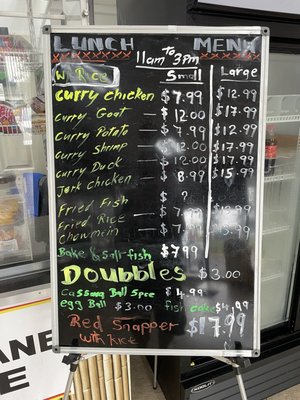 LUNCH MENU
11am to 3pm
W Rice Small Large
curry chicken $7.99 $12.99
curry Goat — $12.00 $17.99
curry Potato — $7.99 $12.99
curry Shrimp — $12.00 $17.99
curry Duck — $12.00 $17.99
Jerk chicken — $8.99 $15.99
$ ?
Fried Fish — $7.
Fried Rice — $
chowmein
Bake & Saltfish $7.99
Doubbles $3.00
Cassava Ball 5pce $4.99
egg Ball $3.00 fish cake $4.99
Red Snapper $17.99
with Rice
ANE
E